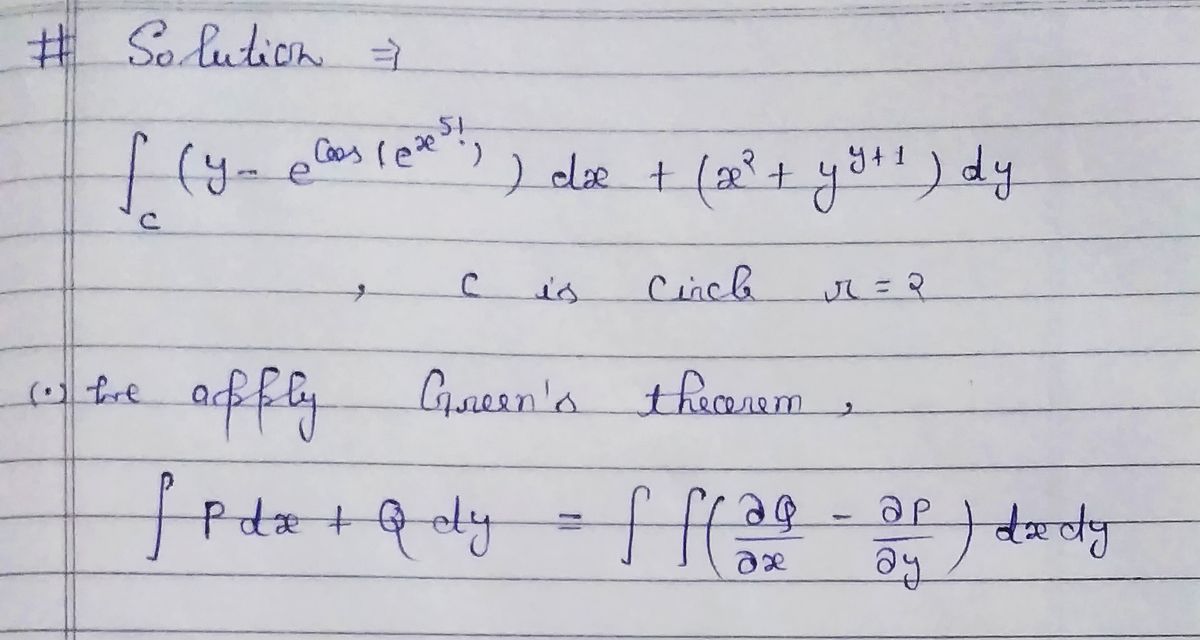 # Solution ⇒
∫_C (y - e^{Cos(e^{x^{5!}})}) dx + (x² + y^{y+1}) dy
, C is circle r = 2
(•) we apply Green's theorem,
∫ P dx + Q dy = ∫∫ (∂Q/∂x - ∂P/∂y) dx dy